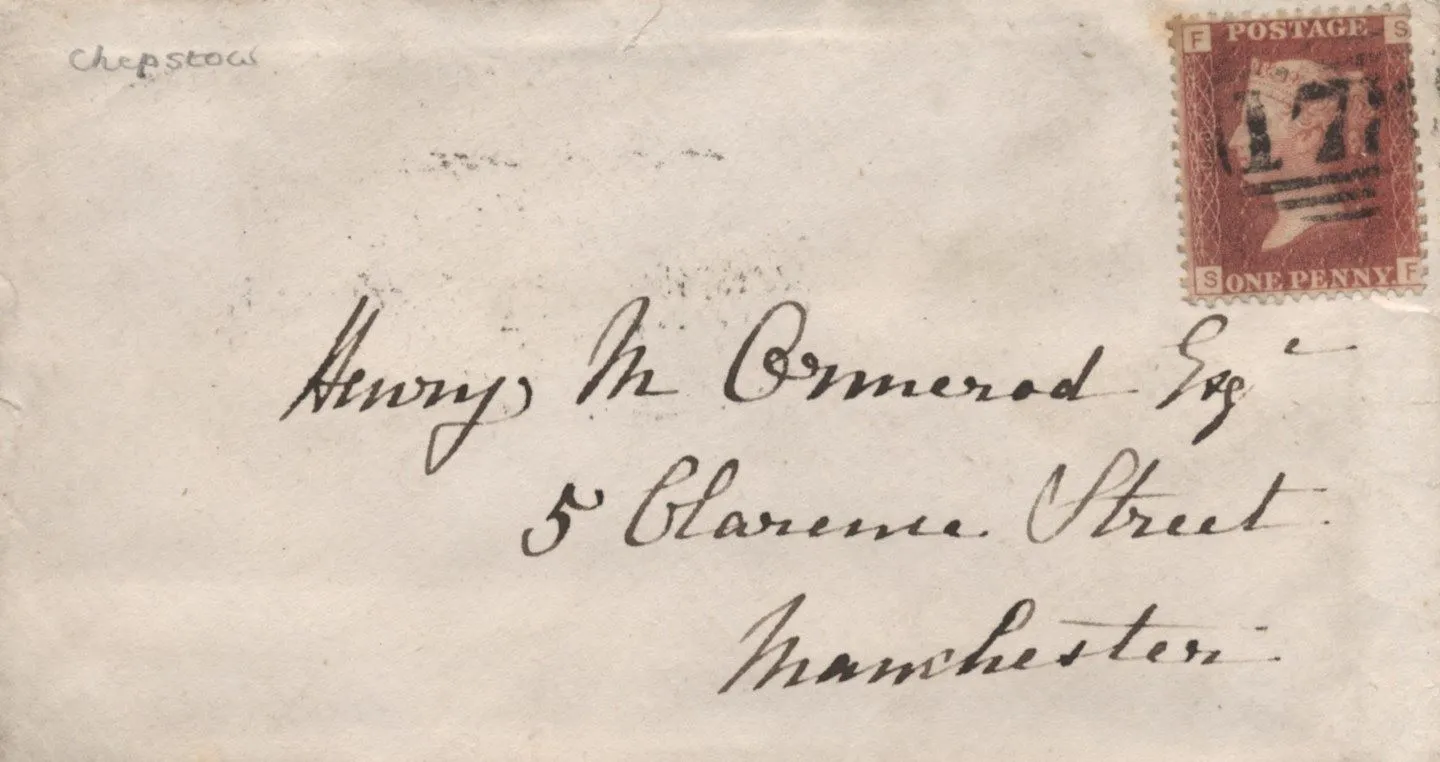 Chepstow
F POSTAGE S
17
S ONE PENNY F
Henry M Ormerod Esqe
5 Clarence Street
Manchester